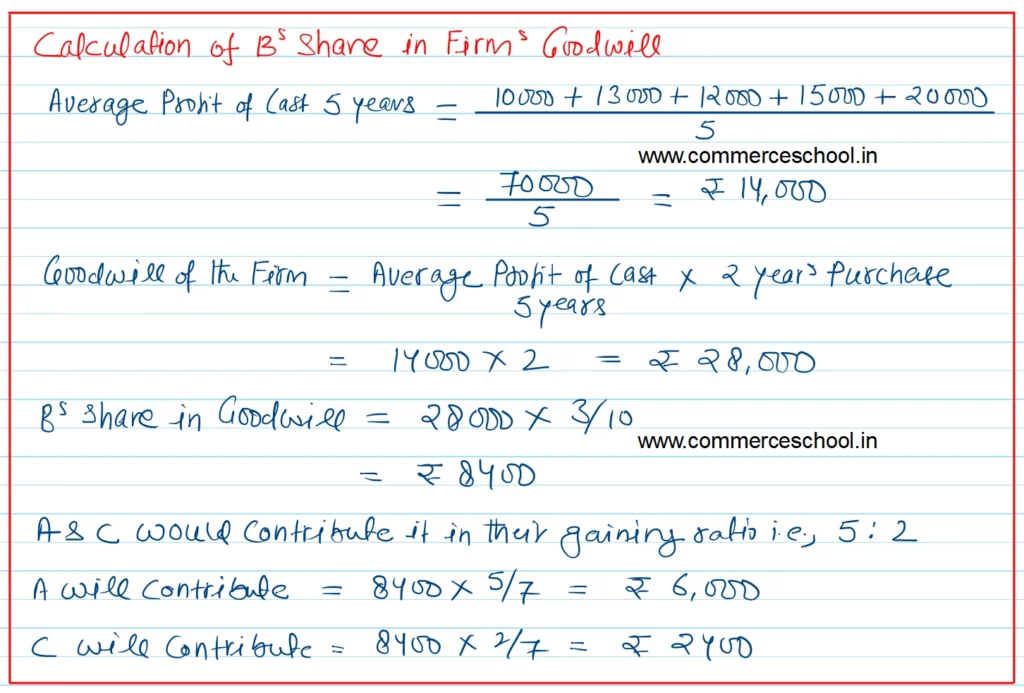 Calculation of Bs Share in Firms Goodwill
Average Profit of Last 5 years = 10000 + 13000 + 12000 + 15000 + 20000
5
www.commerceschool.in
= 70000 / 5 = ₹ 14,000
Goodwill of the Firm = Average Profit of Last × 2 years Purchase
5 years
= 14000 × 2 = ₹ 28,000
Bs Share in Goodwill = 28000 × 3/10
www.commerceschool.in
= ₹ 8400
A & C would Contribute it in their gaining ratio i.e., 5 : 2
A will Contribute = 8400 × 5/7 = ₹ 6,000
C will Contribute = 8400 × 2/7 = ₹ 2400